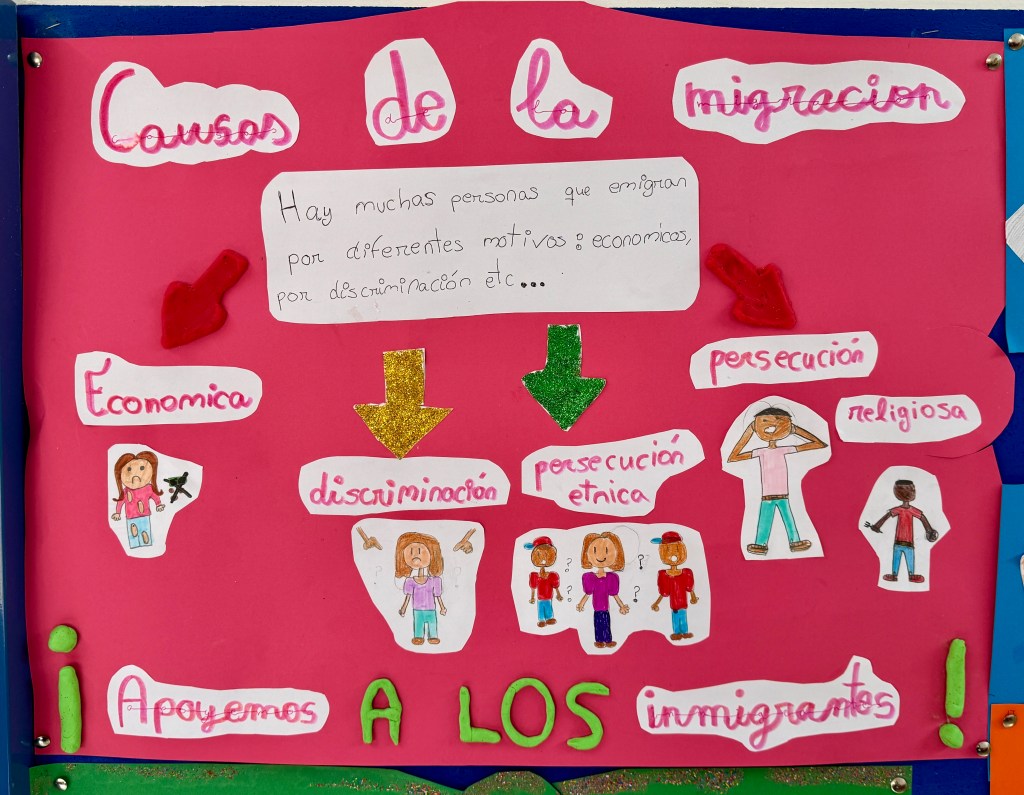 Causas de la migracion
Hay muchas personas que emigran
por diferentes motivos: economicos,
por discriminación etc...
Economica
discriminación
persecución
etnica
persecución
religiosa
? ?
? ?
¡Apoyemos A LOS inmigrantes!